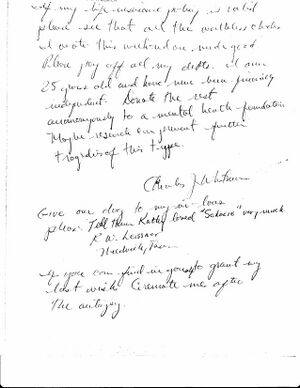 If my life insurance policy is valid
please see that all the worthless checks
I wrote this weekend are made good.
Please pay off all my debts. I am
25 years old and have never been financially
independent. Donate the rest
anonymously to a mental health foundation.
Maybe research can prevent further
tragedies of this type.
Charles J. Whitman
Give our dog to my in-laws
please. Tell them Kathy loved "Schocie" very much
R. W. Leissner
Needville, Texas
If you can find in yourselves to grant my
last wish Cremate me after
the autopsy.